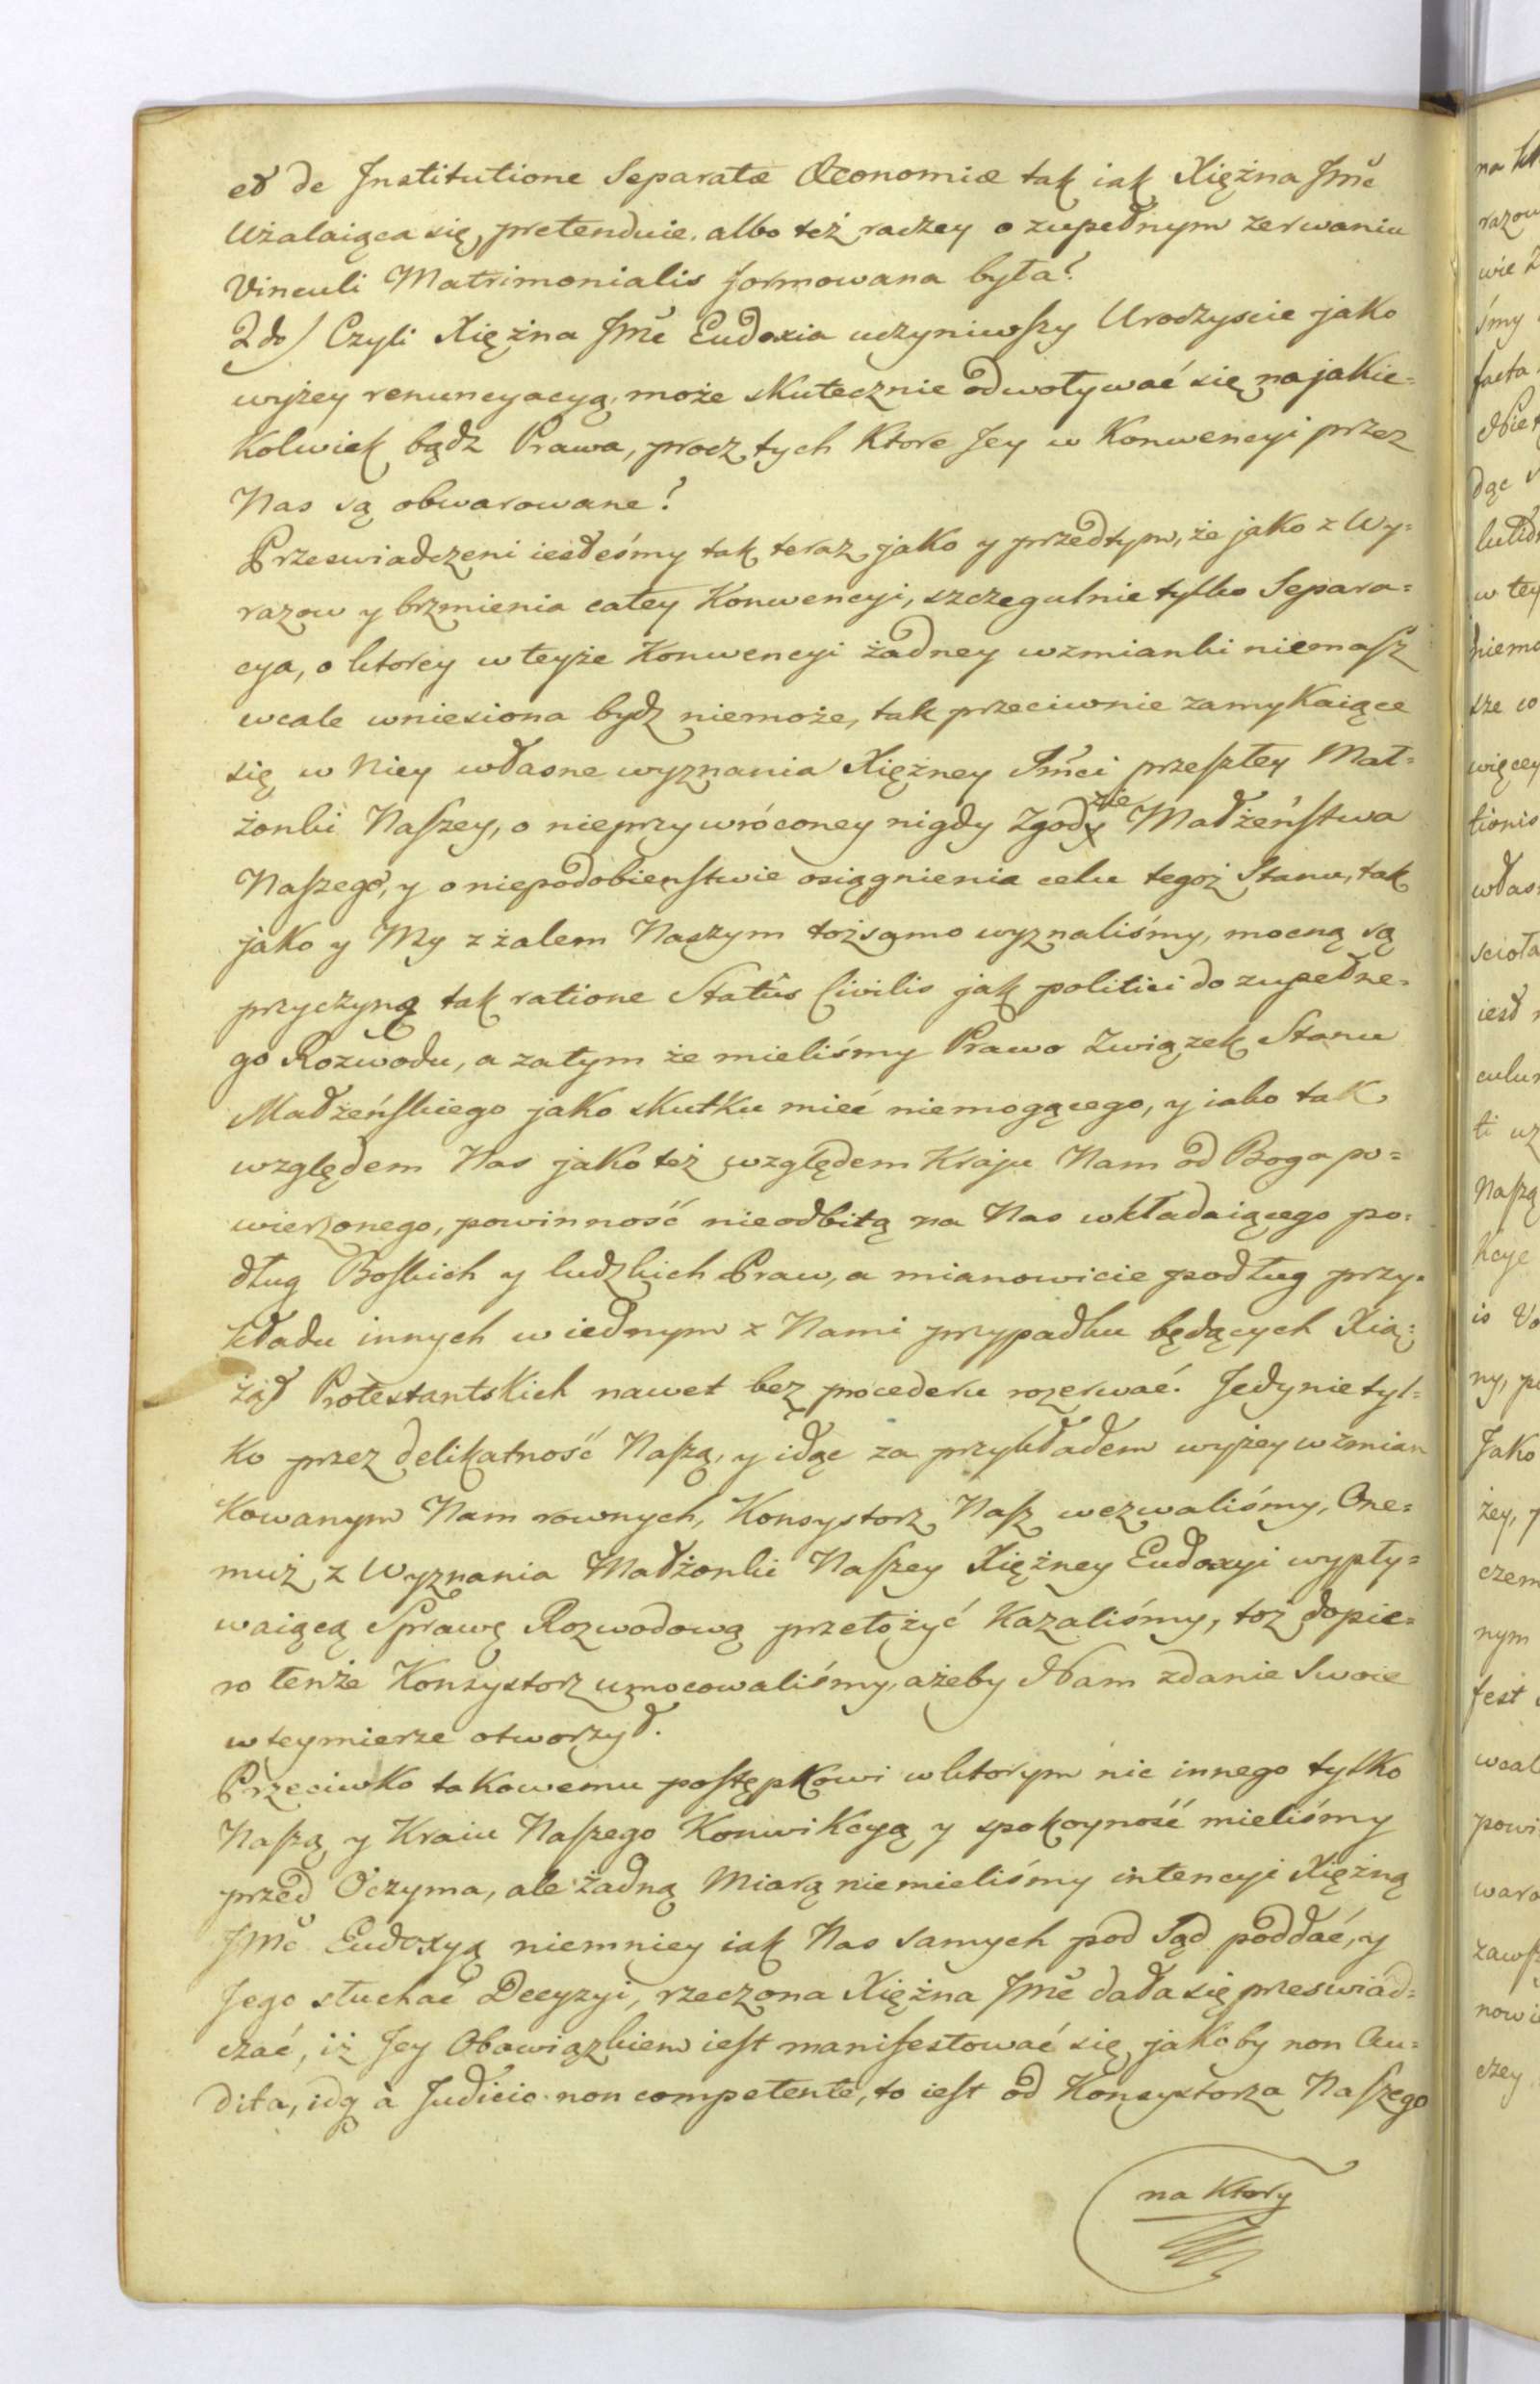 et de Institutione Separatæ Œconomiæ tak iak Xiężna Jmć
Użalaiąca się, pretenduie, albo też raczey o zupełnym zerwaniu
Vinculi Matrimonialis formowana była?
2do) Czyli Xiężna Jmć Eudoxia uczyniwszy Uroczyscie jako
wyżey renuncyacyą, może skutecznie odwoływać się na jakie=
kolwiek bądz Prawa, procz tych Ktore Jey w Konwencyi przez
Nas są obwarowane?
Przeswiadczeni iesteśmy tak teraz jako y przedtym, że jako z Wy=
razow y brzmienia całey Konwencyi, szczegulnie tylko Separa=
cya, o ktorey w teyże Konwencyi żadney wzmianki niemasz
wcale wniesiona bydz niemoże, tak przeciwnie zamykaiące
się w Niey własne wyznania Xiężney Jmći przeszłey Mał=
żonki Naszey, o nieprzywróconey nigdy Zgodzie Małżeństwa
Naszego, y o niepodobienstwie osiągnienia celu tegoż Stanu, tak
jako y My z żalem Naszym tożsamo wyznaliśmy, mocną są
przyczyną tak ratione Statûs Civilis jak politici do zupełne=
go Rozwodu, a zatym że mieliśmy Prawo Związek Stanu
Małżeńskiego jako skutku mieć niemogącego, y iako tak
względem Nas jako też względem Kraju Nam od Boga po=
wierzonego, powinność nieodbitą na Nas wkładaiącego po=
dług Boskich y ludzkich Praw, a mianowicie podług przy=
kładu innych w iednym z Nami przypadku będących Xią=
żąt Protestantskich nawet bez procederu rozerwać. Jedynie tyl=
ko przez delikatność Naszą, y idąc za przykładem wyżey wzmian
kowanym Nam rownych, Konsystorz Nasz wezwaliśmy, One=
muż z Wyznania Małżonki Naszey Xiężney Eudoxyi wypły=
waiącą Sprawę Rozwodową przełożyć Kazaliśmy, toż dopie=
ro tenże Konsystorz umocowaliśmy, ażeby Nam zdanie Swoie
w teymierze otworzył.
Przeciwko takowemu postępkowi w ktorym nic innego tylko
Naszą y Kraiu Naszego Konwikcyą y spokoyność mieliśmy
przed Oczyma, ale żadną Miarą niemieliśmy intencyi Xiężną
Jmć Eudoxyą niemniey iak Nas samych pod Sąd poddać, y
Jego słuchać Decyzyi, rzeczona Xiężna Jmć dała się przeswiad=
czać, iż Jey Obowiązkiem iest manifestować się, jakoby non Au=
dita, idq à Judicio non competente, to iest od Konsystorza Naszego
na Ktory